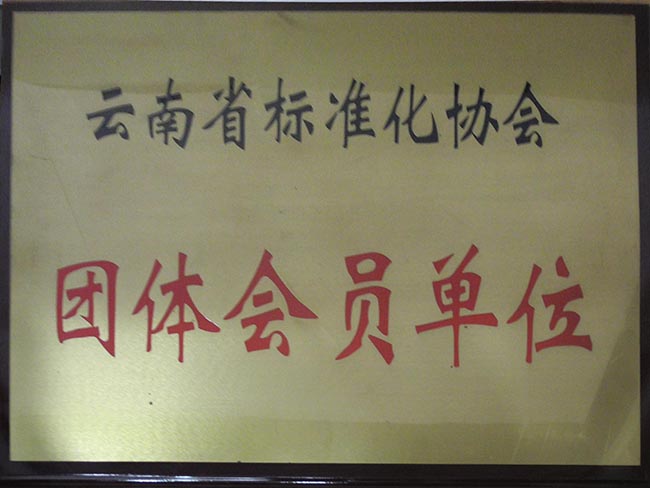 云南省标准化协会
团体会员单位